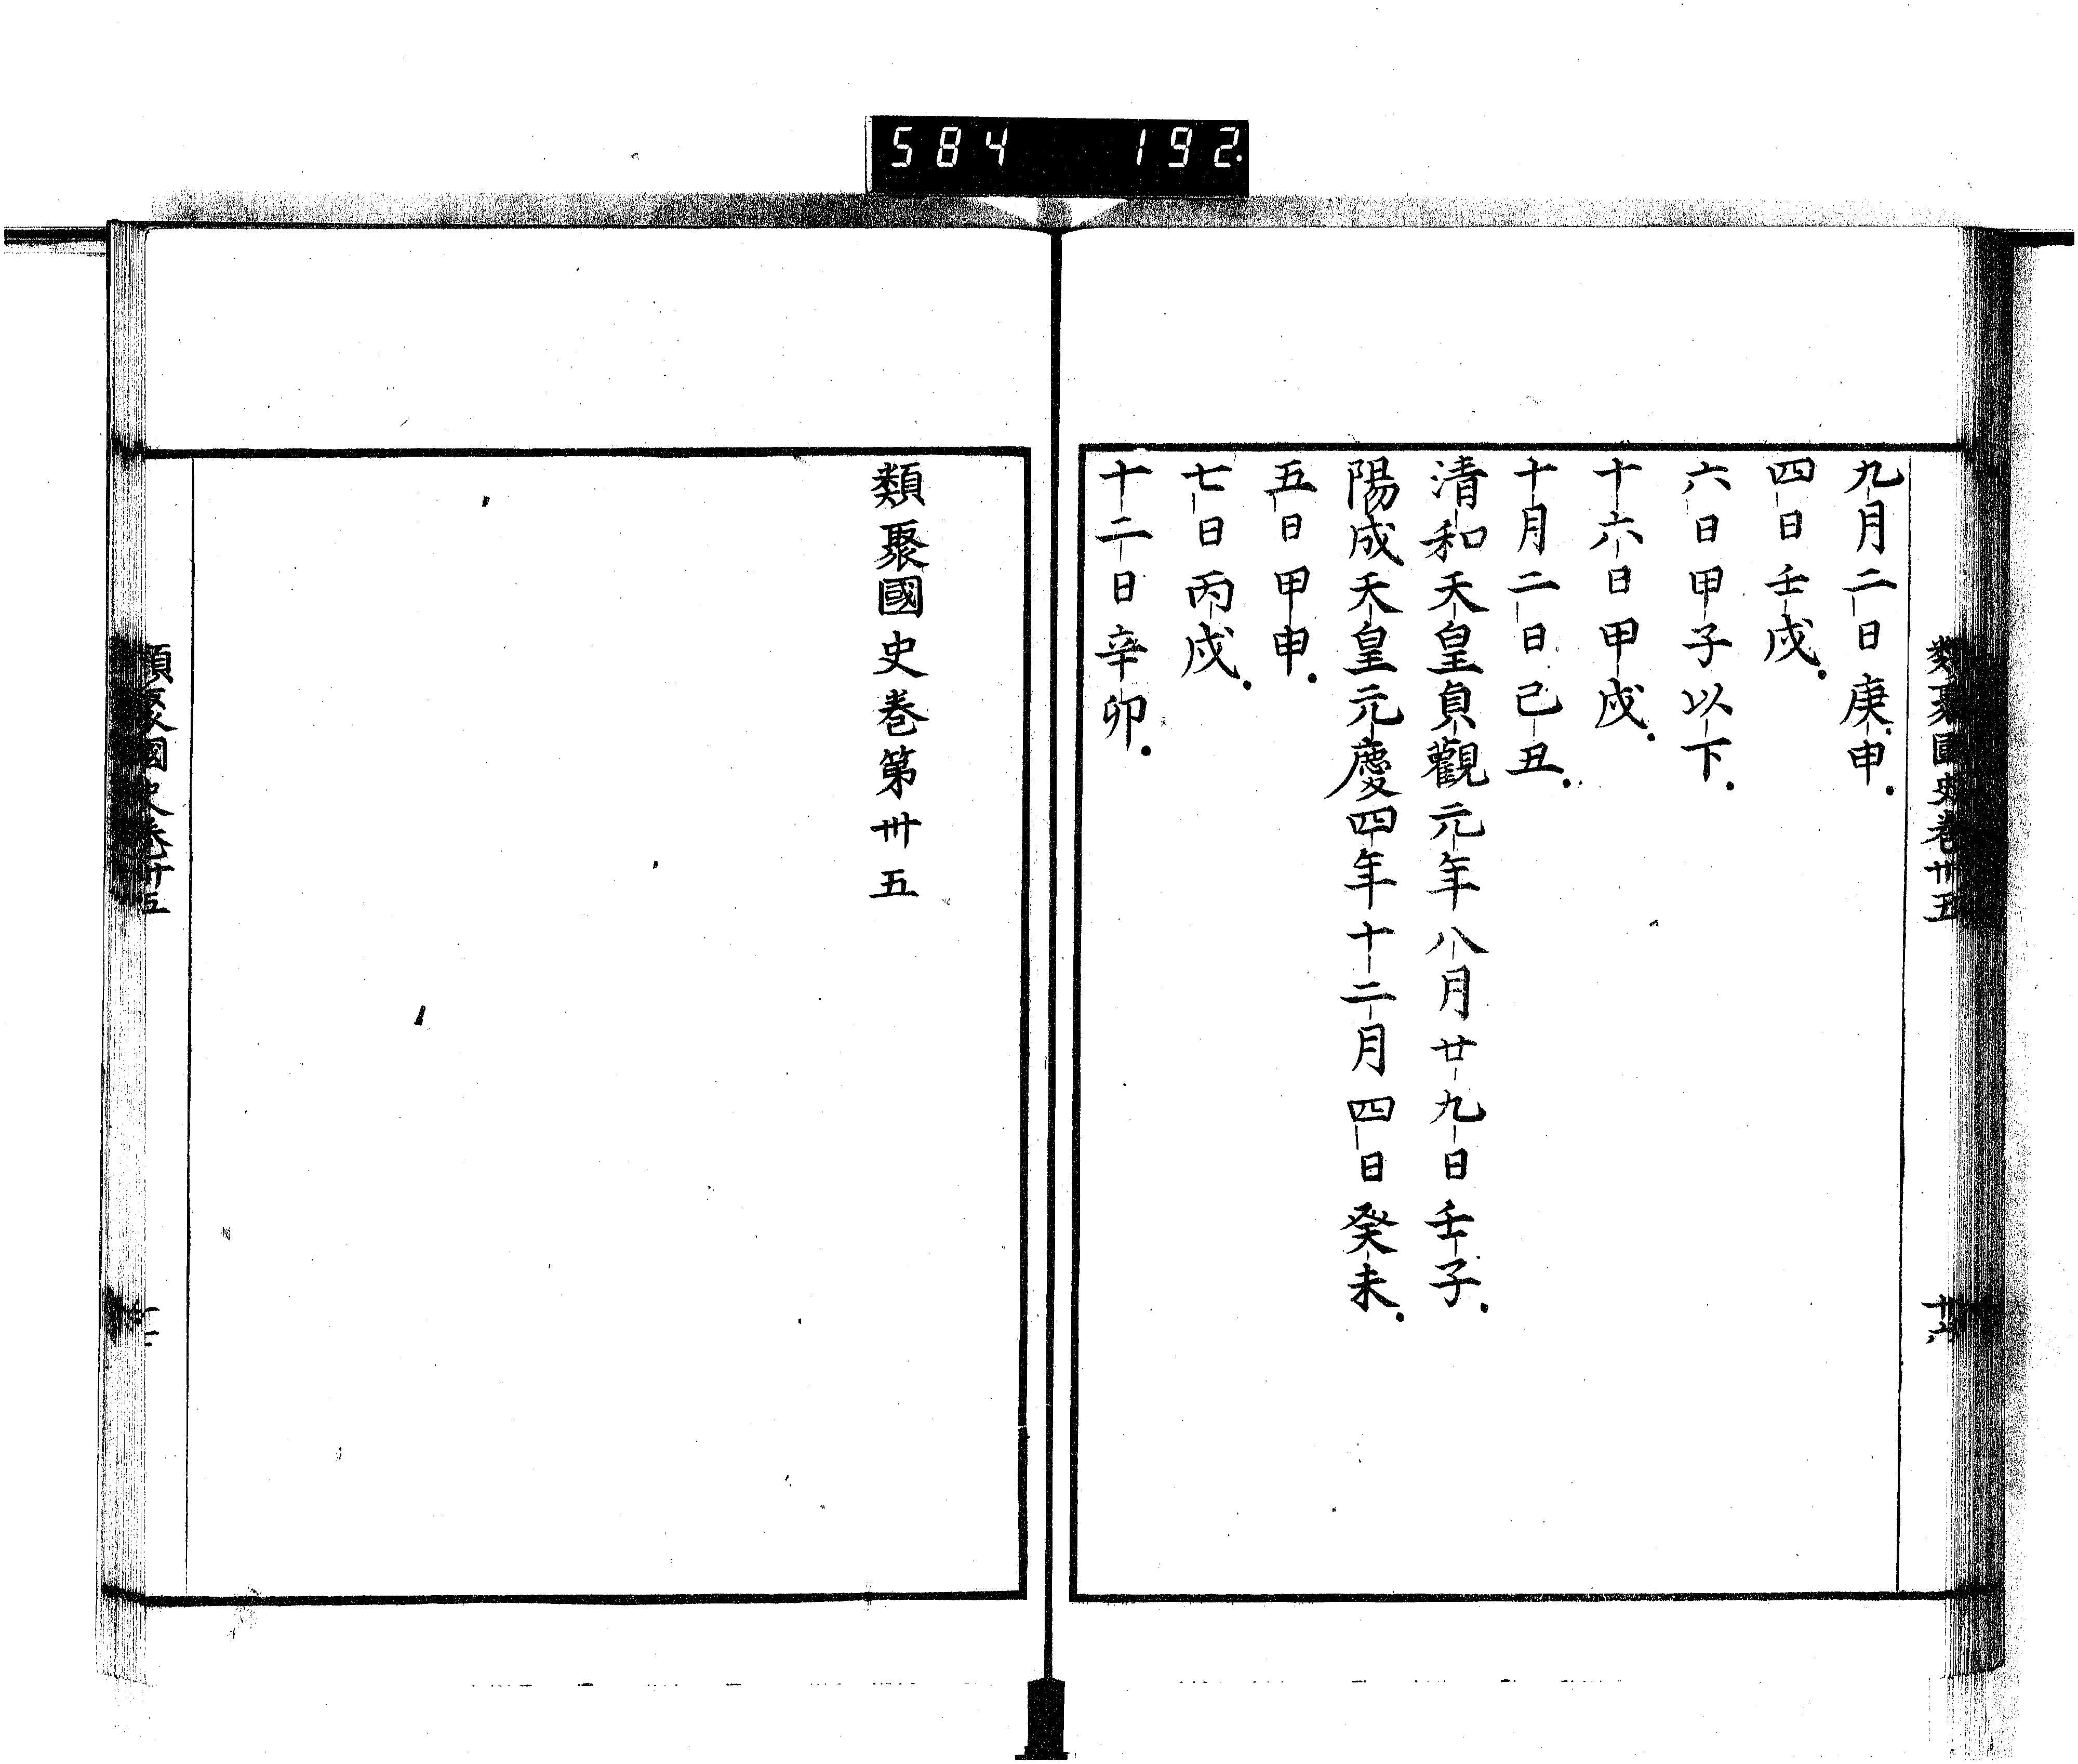 584 192
類聚國史卷卅五
卅六
九月二日庚申
四日壬戌
六日甲子以下
十六日甲戌
十月二日己丑
清和天皇貞觀元年八月廿九日壬子
陽成天皇元慶四年十二月四日癸未
五日甲申
七日丙戌
十二日辛卯
類聚國史卷第卅五
類聚國史卷卅五